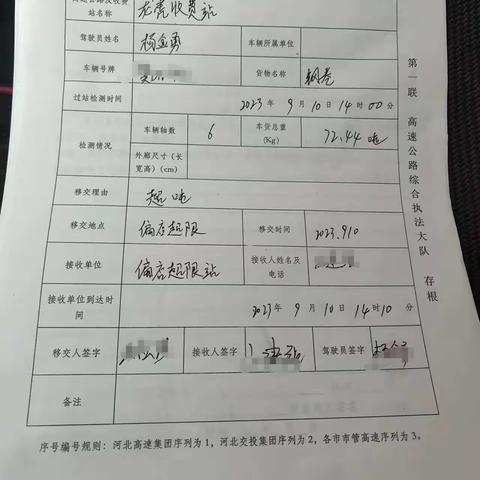 站名称 老虎收费站
驾驶员姓名 杨金勇 车辆所属单位
车辆号牌 货物名称 钢卷
过站检测时间 2023年9月10日14时00分
检测情况 车辆轴数 6 车货总重(Kg) 72.44 吨
外廓尺寸(长宽高)(cm)
移交理由 超吨
移交地点 偏店超限 移交时间 2023.910
接收单位 偏店超限站 接收人姓名及电话
接收单位到达时间 2023年9月10日14时10分
移交人签字 接收人签字 驾驶员签字
备注
序号编号规则:河北高速集团序列为1,河北交投集团序列为2,各市市管高速序列为3。
第一联 高速公路综合执法大队 存根